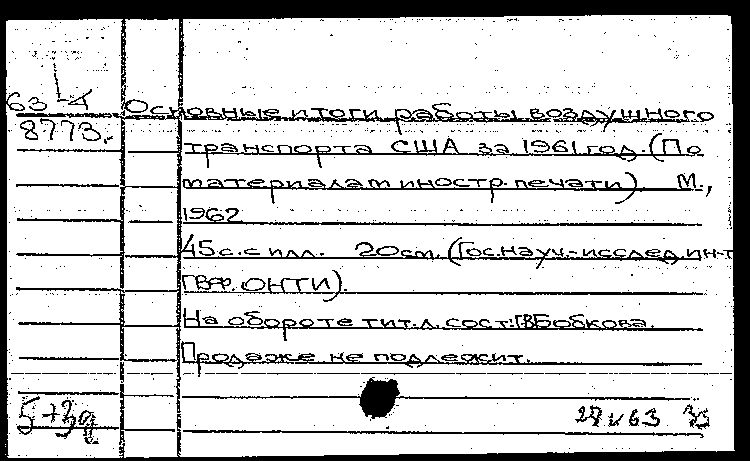 63-4 Основные итоги работы воздушного
8773. транспорта США за 1961 год. (По
материалам иностр. печати). М.,
1962
45с. с илл. 20cm. (Гос. науч.-исслед. ин-т
ГВФ. ОНТИ).
На обороте тит. л. сост: Г.В Бобкова.
Продаже не подлежит.
27 V 63